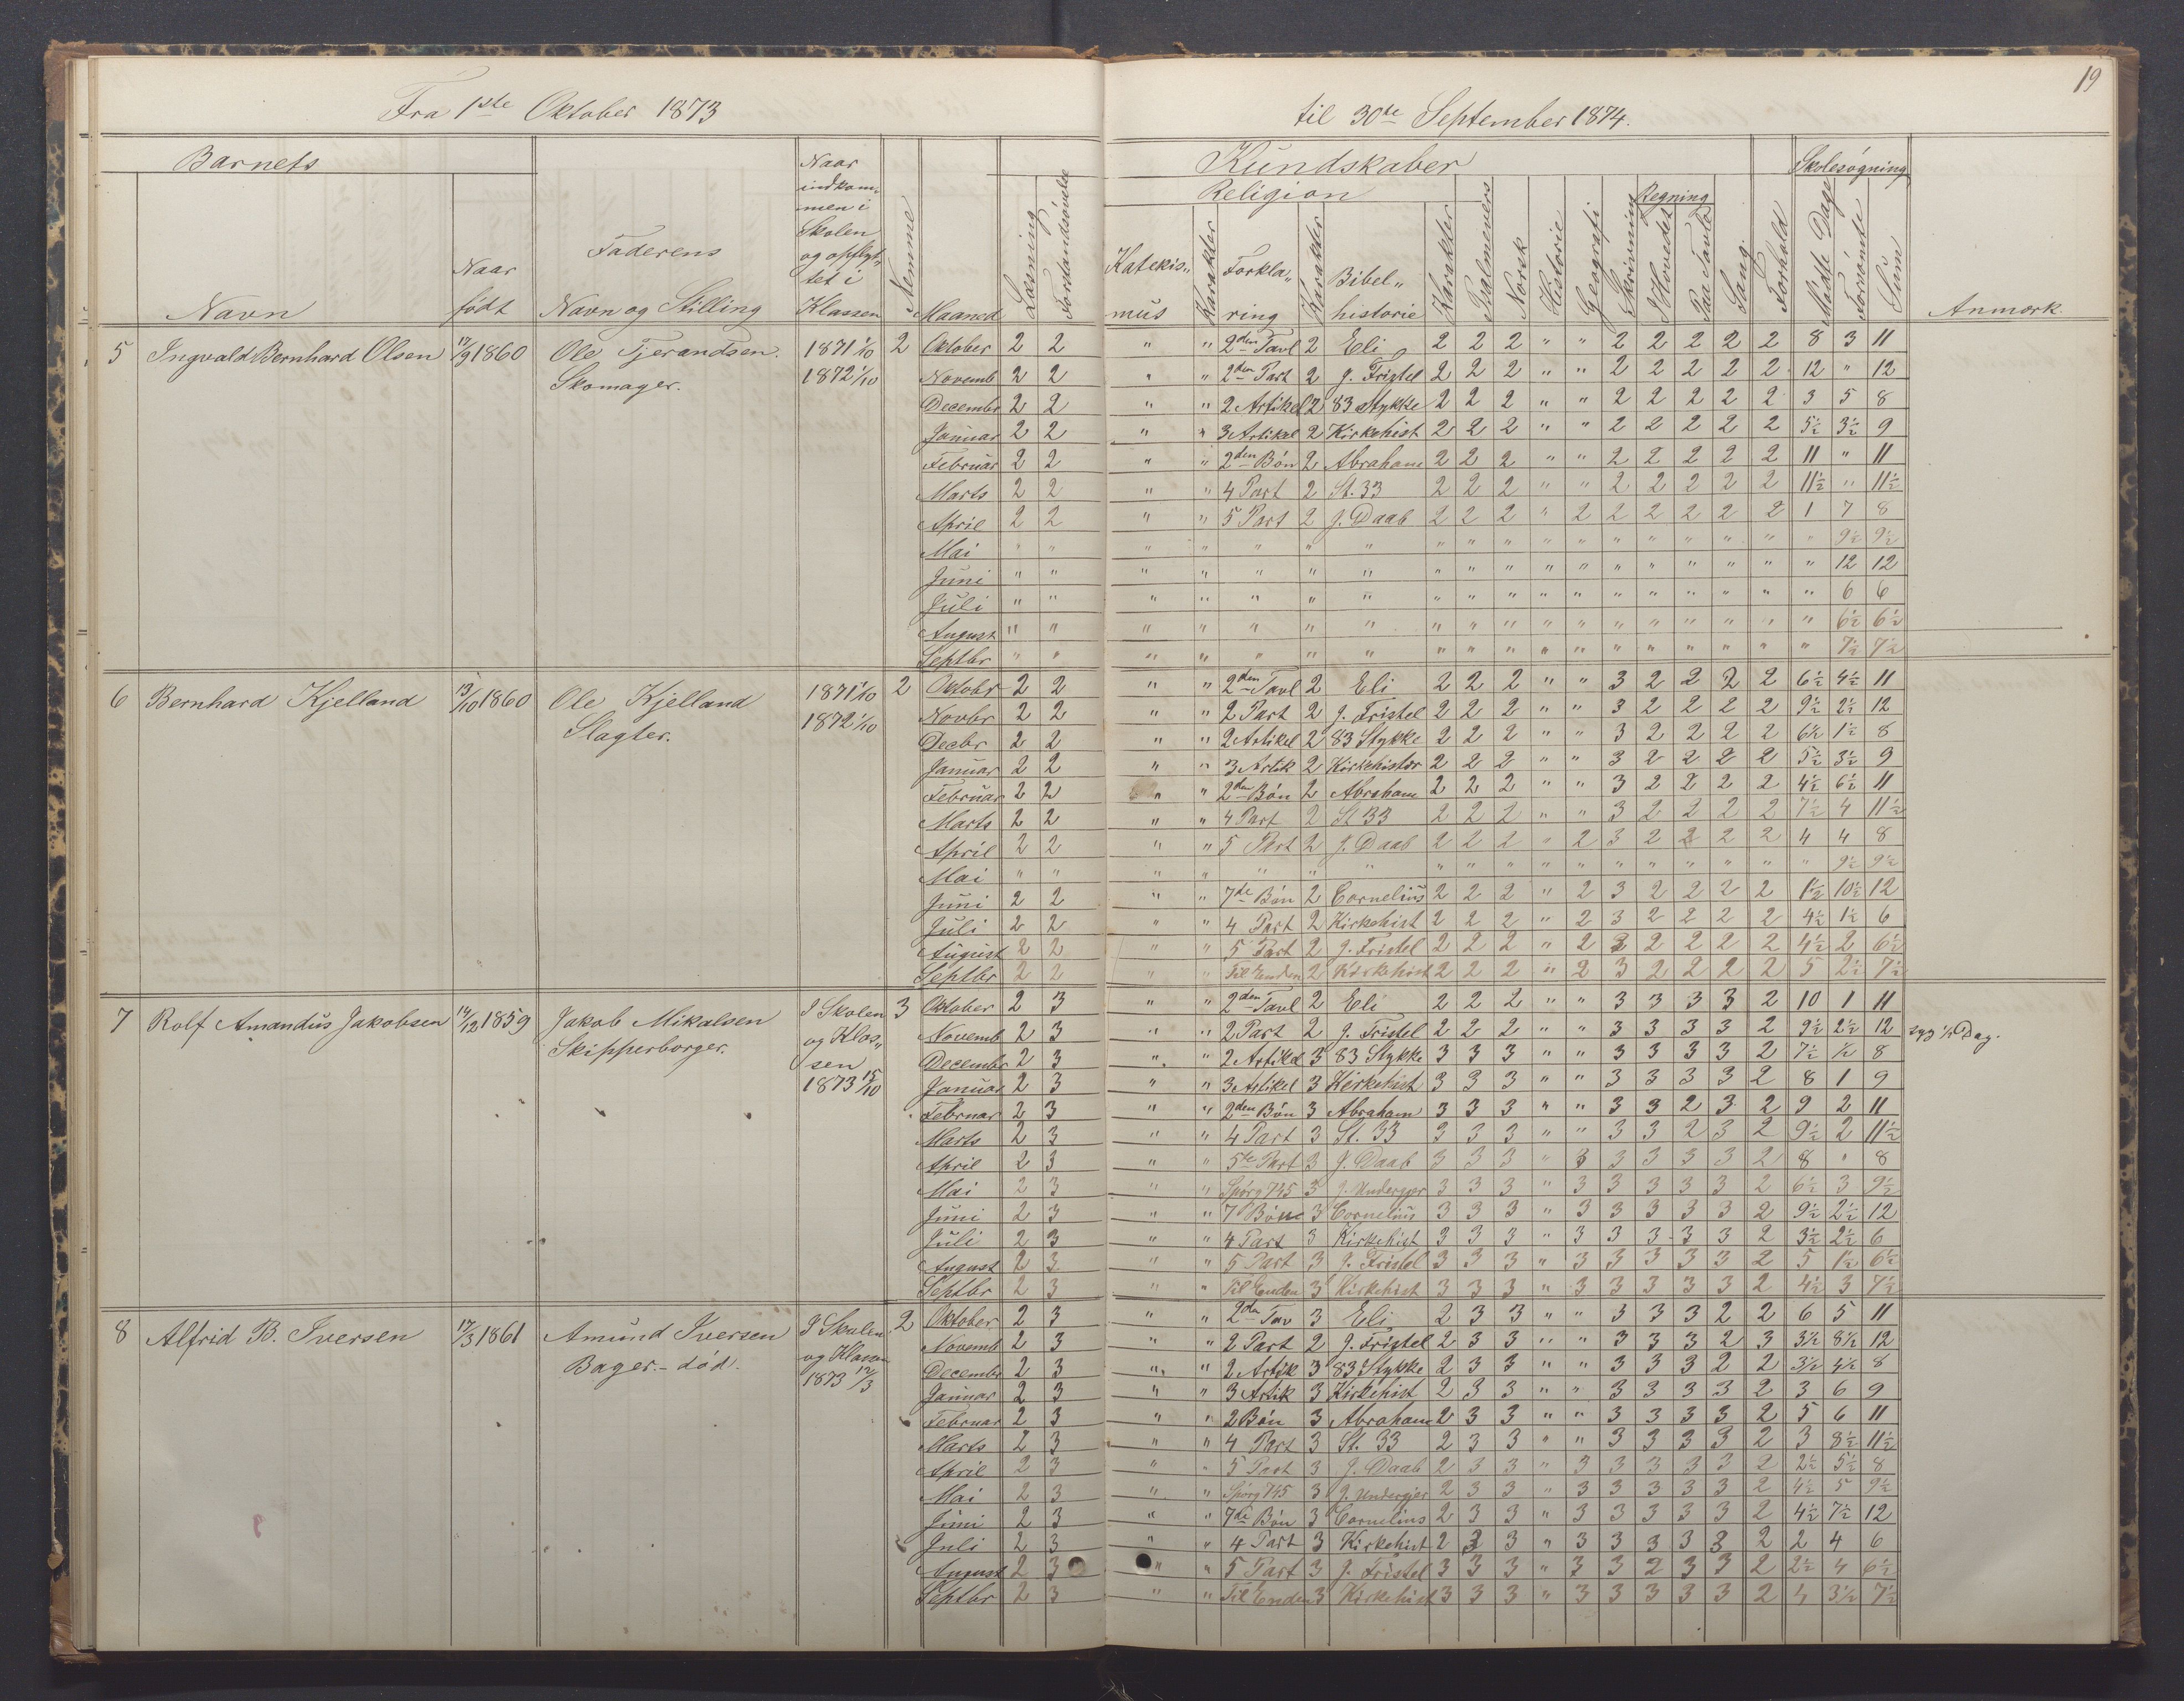 19
Fra 1ste Oktober 1873 til 30te September 1874.
Barnets Kundskaber Skolesøgning
Religion Regning
Navn
Naar født
Faderens Navn og Stilling
Naar indkommen i Skolen og opflyttet i Klassen
Nemme
Maaned
Læsning
Forstandsøvelse
Katekis„ mus
Karakter
Forkla„ ring
Karakter
Bibel„ historie
Karakter
Psalmevers
Norsk
Historie
Geografi
Skrivning
I Hovedet
Paa Tavle
Sang
Forhold
Mødte Dage
Forsømte
Sum
Anmærk.
5 Ingvald Bernhard Olsen 17/9 1860 Ole Tjerandsen. Skomager. 1871 1/10 1872 1/10 2
Oktober 2 2 " " 2den Tavl 2 Eli 2 2 2 " " 2 2 2 2 2 8 3 11
Novemb 2 2 " " 2den Part 2 J. Fristel 2 2 2 " " 2 2 2 2 2 12 " 12
Decembr 2 2 " " 2 Artikel 2 83 Stykke 2 2 2 " " 2 2 2 2 2 3 5 8
Januar 2 2 " " 3 Artikel 2 Kirkehist 2 2 2 " " 2 2 2 2 2 5½ 3½ 9
Februar 2 2 " " 2den Bøn 2 Abraham 2 2 2 " " 2 2 2 2 2 11 " 11
Marts 2 2 " " 4 Part 2 St. 33 2 2 2 " " 2 2 2 2 2 11½ " 11½
April 2 2 " " 5 Part 2 J. Daab 2 2 2 " 2 2 2 2 2 2 1 7 8
Mai " " " " " " " " " " " " " " " " " " 9½ 9½
Juni " " " " " " " " " " " " " " " " " " 12 12
Juli " " " " " " " " " " " " " " " " " " 6 6
August " " " " " " " " " " " " " " " " " " 6½ 6½
Septbr " " " " " " " " " " " " " " " " " " 7½ 7½
6 Bernhard Kjelland 13/10 1860 Ole Kjelland Slagter. 1871 1/10 1872 1/10 2
Oktobr 2 2 " " 2den Tavl 2 Eli 2 2 2 " " 3 2 2 2 2 6½ 4½ 11
Novbr 2 2 " " 2 Part 2 J. Fristel 2 2 2 " " 3 2 2 2 2 9½ 2½ 12
Decbr 2 2 " " 2 Artikel 2 83 Stykke 2 2 2 " " 3 2 2 2 2 6½ 1½ 8
Januar 2 2 " " 3 Artik 2 Kirkehistor 2 2 2 " " 3 2 2 2 2 5½ 3½ 9
Februar 2 2 " " 2den Bøn 2 Abraham 2 2 2 " " 3 2 2 2 2 4½ 6½ 11
Marts 2 2 " " 4 Part 2 St 33 2 2 2 " " 3 2 2 2 2 7½ 4 11½
April 2 2 " " 5 Part 2 J. Daab 2 2 2 " 2 3 2 2 2 2 4 4 8
Mai " " " " " " " " " " " " " " " " " " 9½ 9½
Juni 2 2 " " 7de Bøn 2 Cornelius 2 2 2 " 2 3 2 2 2 2 1½ 10½ 12
Juli 2 2 " " 4 Part 2 Kirkehist 2 2 2 " 2 3 2 2 2 2 4½ 1½ 6
August 2 2 " " 5 Part 2 J. Fristel 2 2 2 " 2 3 2 2 2 2 4½ 2 6½
Septbr 2 2 " " Til Enden 2 Kirkehist 2 2 2 " 2 3 2 2 2 2 5 2½ 7½
7 Rolf Amandus Jakobsen 14/12 1859 Jakob Mikalsen Skipperborger. I Skolen og Klas„ sen 1873 15/10 3
Oktober 2 3 " " 2den Tavl 2 Eli 2 2 2 " " 3 3 3 3 2 10 1 11
Novemb 2 3 " " 2 Part 2 J. Fristel 2 2 2 " " 3 3 3 3 2 9½ 2½ 12 syg ½ Dag.
Decembr 2 3 " " 2 Artikel 3 83 Stykke 3 3 3 " " 3 3 3 3 2 7½ ½ 8
Januar 2 3 " " 3 Artikel 3 Kirkehist 3 3 3 " " 3 3 3 3 2 8 1 9
Februar 2 3 " " 2den Bøn 3 Abraham 3 3 3 " " 3 3 2 3 2 9 2 11
Marts 2 3 " " 4 Part 3 St. 33 3 3 3 " " 3 3 2 3 2 9½ 2 11½
April 2 3 " " 5te Part 3 J. Daab 3 3 3 " 3 3 3 3 3 2 8 " 8
Mai 2 3 " " Spørg 745 3 J. Undergjør 3 3 3 " 3 3 3 3 3 2 6½ 3 9½
Juni 2 3 " " 7 Bøn 3 Cornelius 3 3 3 " 3 3 3 3 3 2 9½ 2½ 12
Juli 2 3 " " 4 Part 3 Kirkehist 3 3 3 " 3 3 3 3 3 2 3½ 2½ 6
August 2 3 " " 5 Part 3 J. Fristel 3 3 3 " 3 3 3 3 3 2 5 1½ 6½
Septbr 2 3 " " Til Enden 3 Kirkehist 3 3 3 " 3 3 3 3 3 2 4½ 3 7½
8 Alfrid B. Iversen 17/3 1861 Amund Iversen Bager.- død. I Skolen og Klassen 1873 12/3 2
Oktober 2 3 " " 2den Tav 3 Eli 2 3 3 " " 3 3 3 2 2 6 5 11
Novemb 2 3 " " 2 Part 2 J. Fristel 2 3 3 " " 3 3 3 2 3 3½ 8½ 12
Decembr 2 3 " " 2 Artik 3 83 Stykke 2 3 3 " " 3 3 3 2 2 3½ 4½ 8
Januar 2 3 " " 3 Artik 3 Kirkehist 2 3 3 " " 3 3 3 3 2 3 6 9
Februar 2 3 " " 2 Bøn 3 Abraham 2 3 3 " " 3 3 3 3 2 5 6 11
Marts 2 3 " " 4 Part 3 St. 33 2 3 3 " " 3 3 3 3 2 3 8½ 11½
April 2 3 " " 5 Part 3 J. Daab 2 3 3 " 3 3 3 3 3 2 2½ 5½ 8
Mai 2 3 " " Spørg 745 3 J. Undergjør 2 3 3 " 3 3 3 3 3 2 4½ 5 9½
Juni 2 3 " " 7de Bøn 3 Cornelius 2 3 3 " 3 3 3 3 3 2 4½ 7½ 12
Juli 2 3 " " 4 Part 3 Kirkehist 2 3 3 " 3 3 3 3 3 2 2 4 6
August 2 3 " " 5 Part 3 J. Fristel 3 3 3 " 3 3 2 3 3 2 2½ 4 6½
Septbr 2 3 " " Til Enden 3 Kirkehist 3 3 3 " 3 3 3 3 3 2 4 3½ 7½